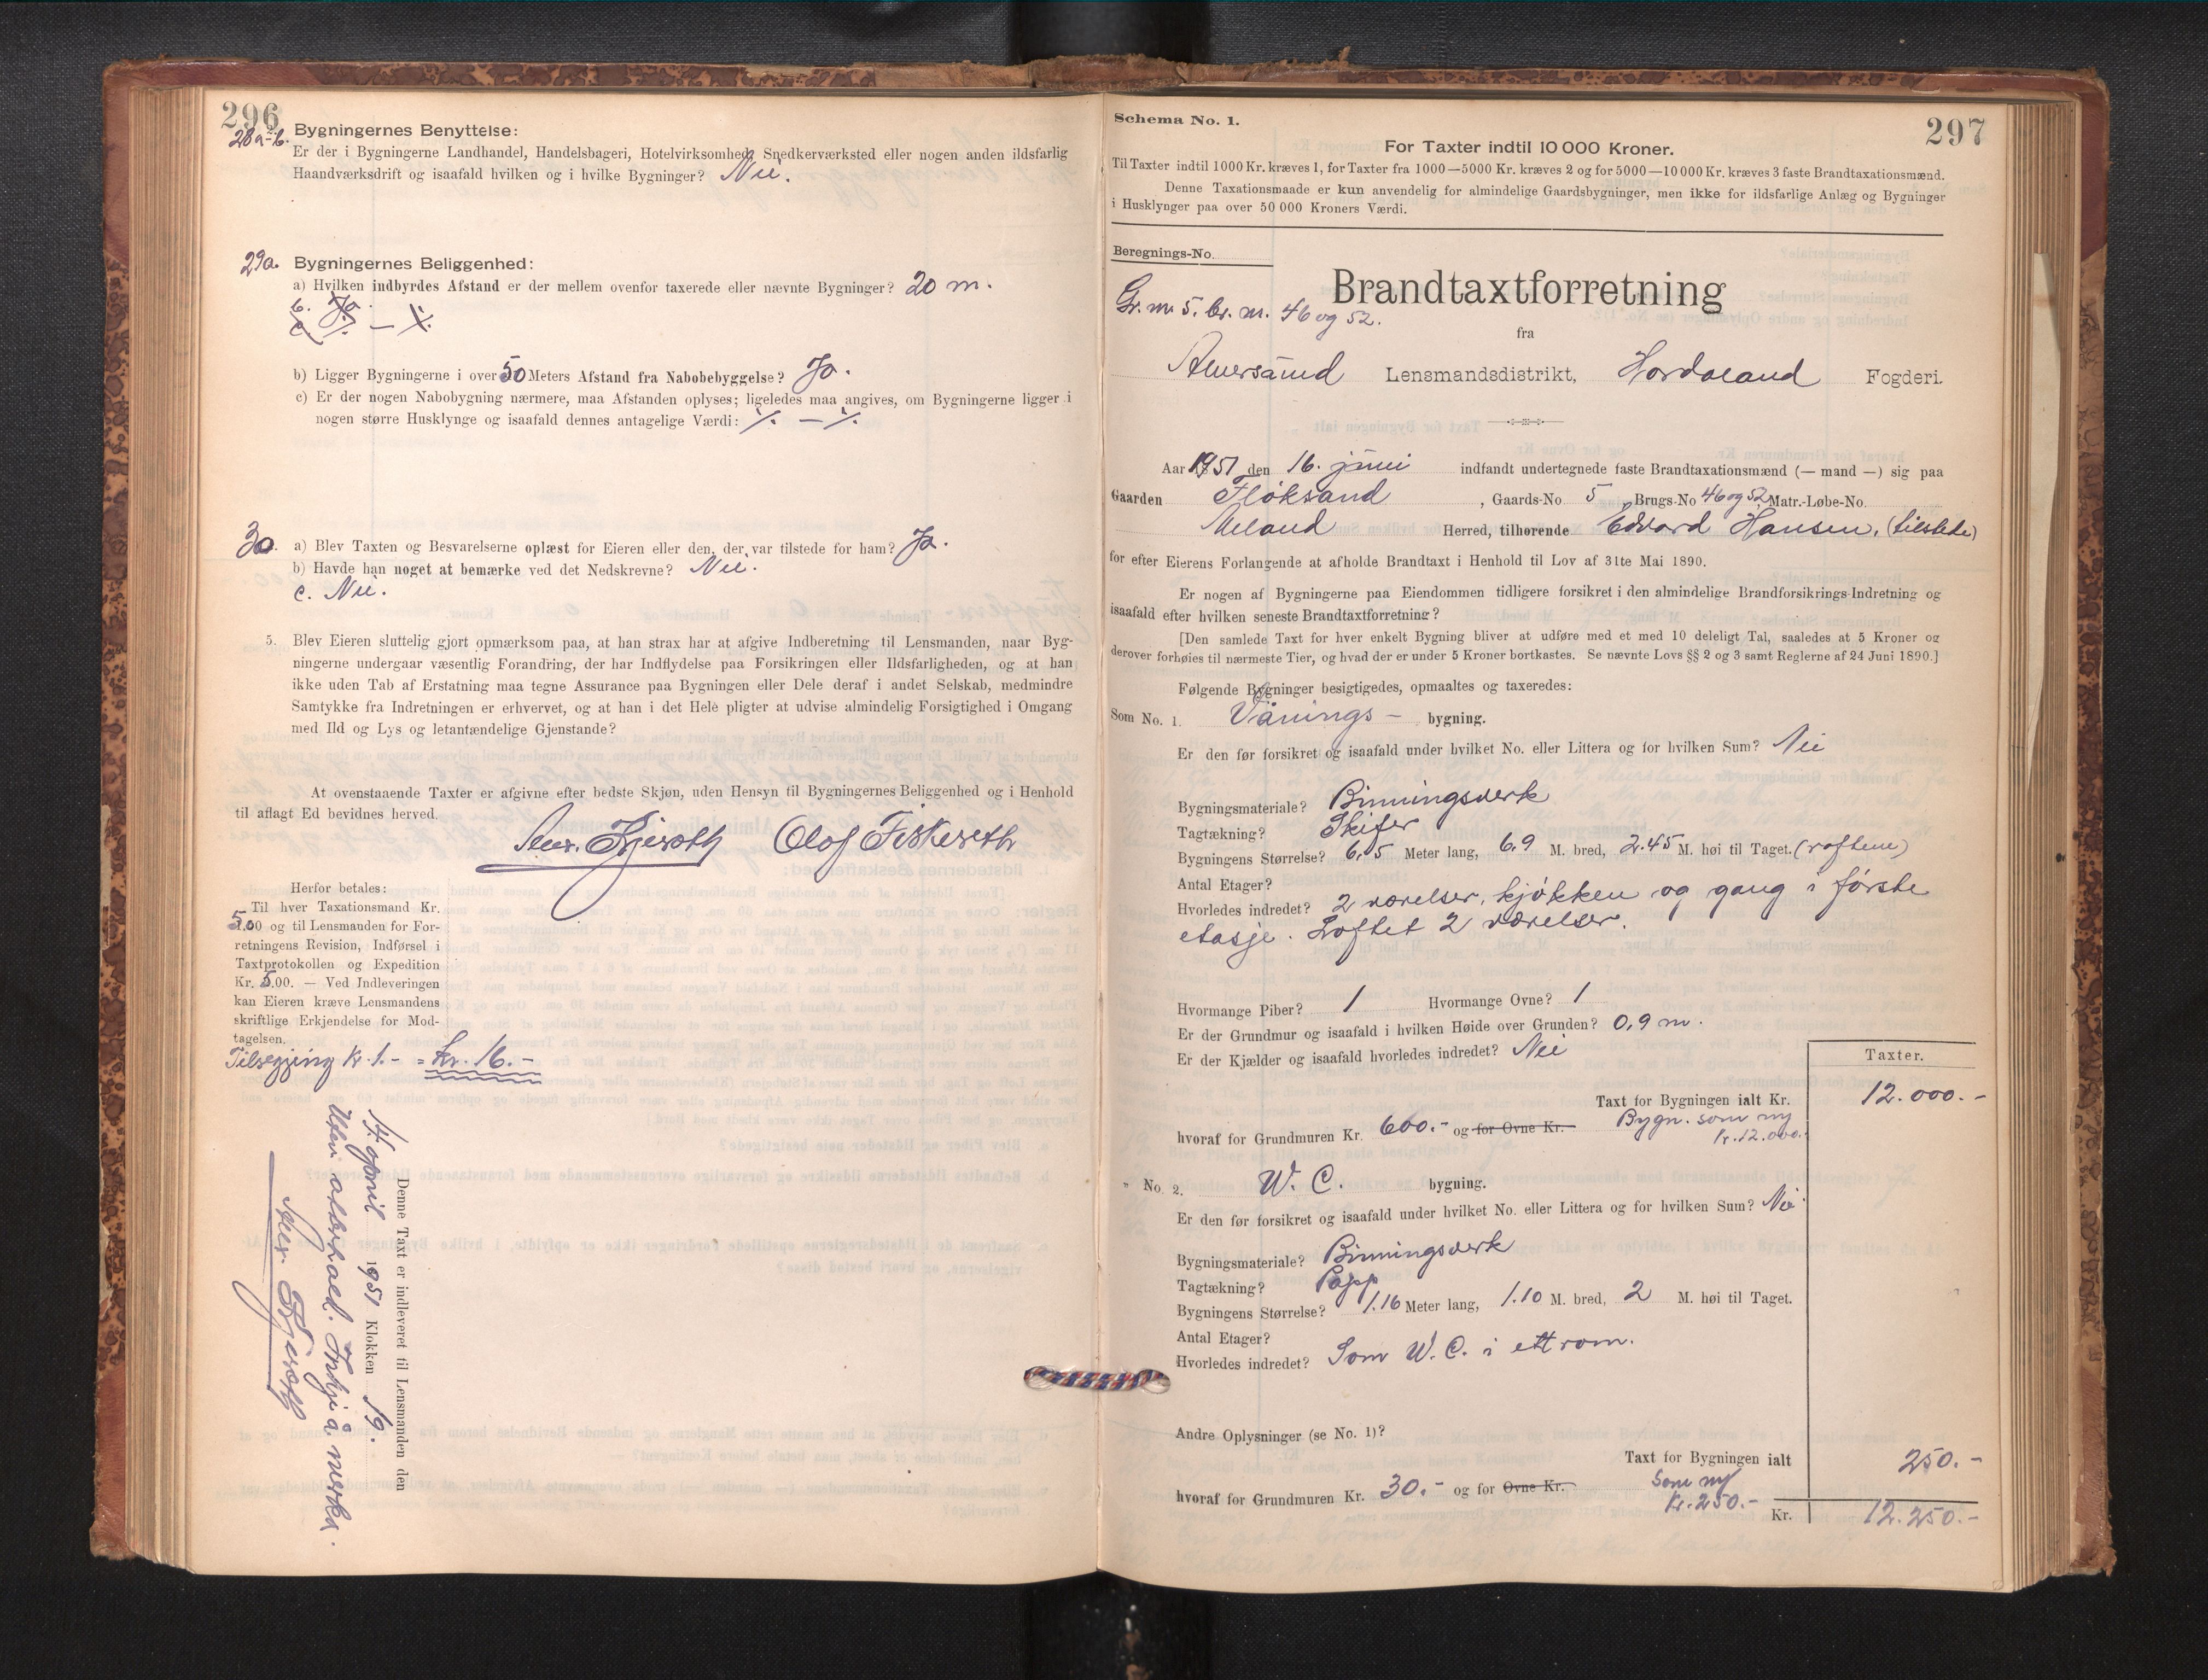 296
28a-b. Bygningernes Benyttelse:
Er der i Bygningerne Landhandel, Handelsbageri, Hotelvirksomhed, Snedkerværksted eller nogen anden ildsfarlig
Haandværksdrift og isaafald hvilken og i hvilke Bygninger? Nei.
29a. Bygningernes Beliggenhed:
a) Hvilken indbyrdes Afstand er der mellem ovenfor taxerede eller nævnte Bygninger? 20 m.
b. Ja.
c. ./. — ./.
b) Ligger Bygningerne i over 50 Meters Afstand fra Nabobebyggelse? Ja.
c) Er der nogen Nabobygning nærmere, maa Afstanden oplyses; ligeledes maa angives, om Bygningerne ligger i
nogen større Husklynge og isaafald dennes antagelige Værdi: ./. — ./.
30. a) Blev Taxten og Besvarelserne oplæst for Eieren eller den, der var tilstede for ham? Ja.
b) Havde han noget at bemærke ved det Nedskrevne? Nei.
c. Nei.
5. Blev Eieren sluttelig gjort opmærksom paa, at han strax har at afgive Indberetning til Lensmanden, naar Byg-
ningerne undergaar væsentlig Forandring, der har Indflydelse paa Forsikringen eller Ildsfarligheden, og at han
ikke uden Tab af Erstatning maa tegne Assurance paa Bygningen eller Dele deraf i andet Selskab, medmindre
Samtykke fra Indretningen er erhvervet, og at han i det Hele pligter at udvise almindelig Forsigtighed i Omgang
med Ild og Lys og letantændelige Gjenstande?
At ovenstaaende Taxter er afgivne efter bedste Skjøn, uden Hensyn til Bygningernes Beliggenhed og i Henhold
til aflagt Ed bevidnes herved.
Olof Fiskeseth
Herfor betales:
Til hver Taxationsmand Kr.
5.00 og til Lensmanden for For-
retningens Revision, Indførsel i
Taxtprotokollen og Expedition
Kr. 5.00. — Ved Indleveringen
kan Eieren kræve Lensmandens
skriftlige Erkjendelse for Mod-
tagelsen.
Tilsegjing Kr. 1.- = Kr. 16.-
Denne Taxt er indleveret til Lensmanden den
14. april 1951 Klokken 19.
Uten atterhald. Inkje å merka.
297
Schema No. 1.
For Taxter indtil 10 000 Kroner.
Til Taxter indtil 1000 Kr. kræves 1, for Taxter fra 1000—5000 Kr. kræves 2 og for 5000—10 000 Kr. kræves 3 faste Brandtaxationsmænd.
Denne Taxationsmaade er kun anvendelig for almindelige Gaardsbygninger, men ikke for ildsfarlige Anlæg og Bygninger
i Husklynger paa over 50 000 Kroners Værdi.
Beregnings-No.
Gr. nr. 5. br. nr. 46 og 52.
Brandtaxtforretning
fra
Alversund Lensmandsdistrikt, Hordaland Fogderi.
Aar 1951 den 16. juni indfandt undertegnede faste Brandtaxationsmænd (— mand —) sig paa
Gaarden Fløksand, Gaards-No 5 Brugs-No 46 og 52 Matr.-Løbe-No.
Meland Herred, tilhørende Edvard Hansen, (tilstede)
for efter Eierens Forlangende at afholde Brandtaxt i Henhold til Lov af 31te Mai 1890.
Er nogen af Bygningerne paa Eiendommen tidligere forsikret i den almindelige Brandforsikrings-Indretning og
isaafald efter hvilken seneste Brandtaxtforretning?
[Den samlede Taxt for hver enkelt Bygning bliver at udføre med et med 10 deleligt Tal, saaledes at 5 Kroner og
derover forhøies til nærmeste Tier, og hvad der er under 5 Kroner bortkastes. Se nævnte Lovs §§ 2 og 3 samt Reglerne af 24 Juni 1890.]
Følgende Bygninger besigtigedes, opmaaltes og taxeredes:
Som No. 1. Vånings- bygning.
Er den før forsikret og isaafald under hvilket No. eller Littera og for hvilken Sum? Nei
Bygningsmateriale? Binningsverk
Tagtækning? Skifer
Bygningens Størrelse? 6,5 Meter lang, 6,9 M. bred, 2.45 M. høi til Taget. (røftene)
Antal Etager?
Hvorledes indredet? 2 værelser, kjøkken og gang i første
etasje. Loftet 2 værelser.
Hvormange Piber? 1 Hvormange Ovne? 1
Er der Grundmur og isaafald i hvilken Høide over Grunden? 0,9 m.
Er der Kjælder og isaafald hvorledes indredet? Nei
Taxter.
Taxt for Bygningen ialt Kr. 12.000.-
hvoraf for Grundmuren Kr. 600.- og for Ovne Kr. Bygn. som ny
Kr. 12.000.-
" No. 2. W. C. bygning.
Er den før forsikret og isaafald under hvilket No. eller Littera og for hvilken Sum? Nei
Bygningsmateriale? Binningsverk
Tagtækning? Papp
Bygningens Størrelse? 1.16 Meter lang, 1.10 M. bred, 2 M. høi til Taget.
Antal Etager?
Hvorledes indredet? Som W. C. i ett rom.
Andre Oplysninger (se No. 1)?
Taxt for Bygningen ialt 250.-
hvoraf for Grundmuren Kr. 30.- og for Ovne Kr. Som ny
Kr. 250.-
Kr. 12.250.-